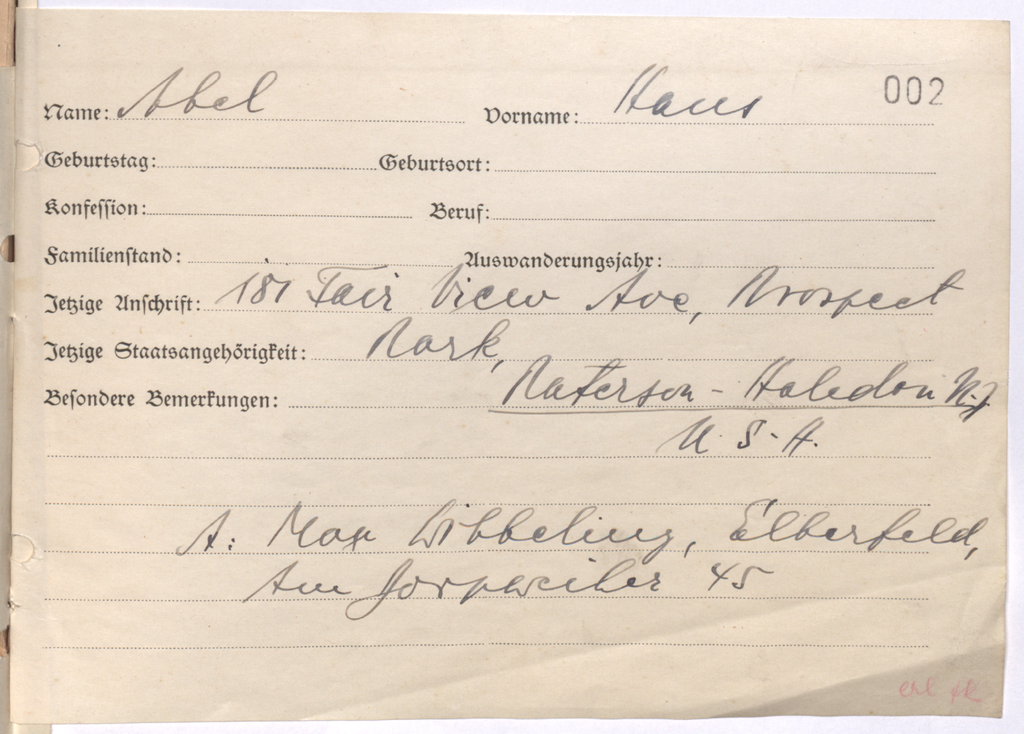 002
Name: Abel Vorname: Hans
Geburtstag: Geburtsort:
Konfession: Beruf:
Familienstand: Auswanderungsjahr:
Jetzige Anschrift: 181 Fair View Ave, Prospect
Jetzige Staatsangehörigkeit: Park,
Besondere Bemerkungen: Paterson - Haledon N.J.
U. S. A.
A: Max Wibbeling, Elberfeld,
Am 45
erl